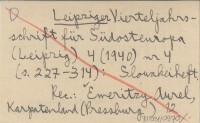 Leipziger Vierteljahrs-
schrift für Südosteuropa
(Leipzig) 4 (1940) nr 4
(s. 227-314): Slounkeiheft,
Rec.: Emeritzy Aurel,
Karpatenland (Pressburg) 12